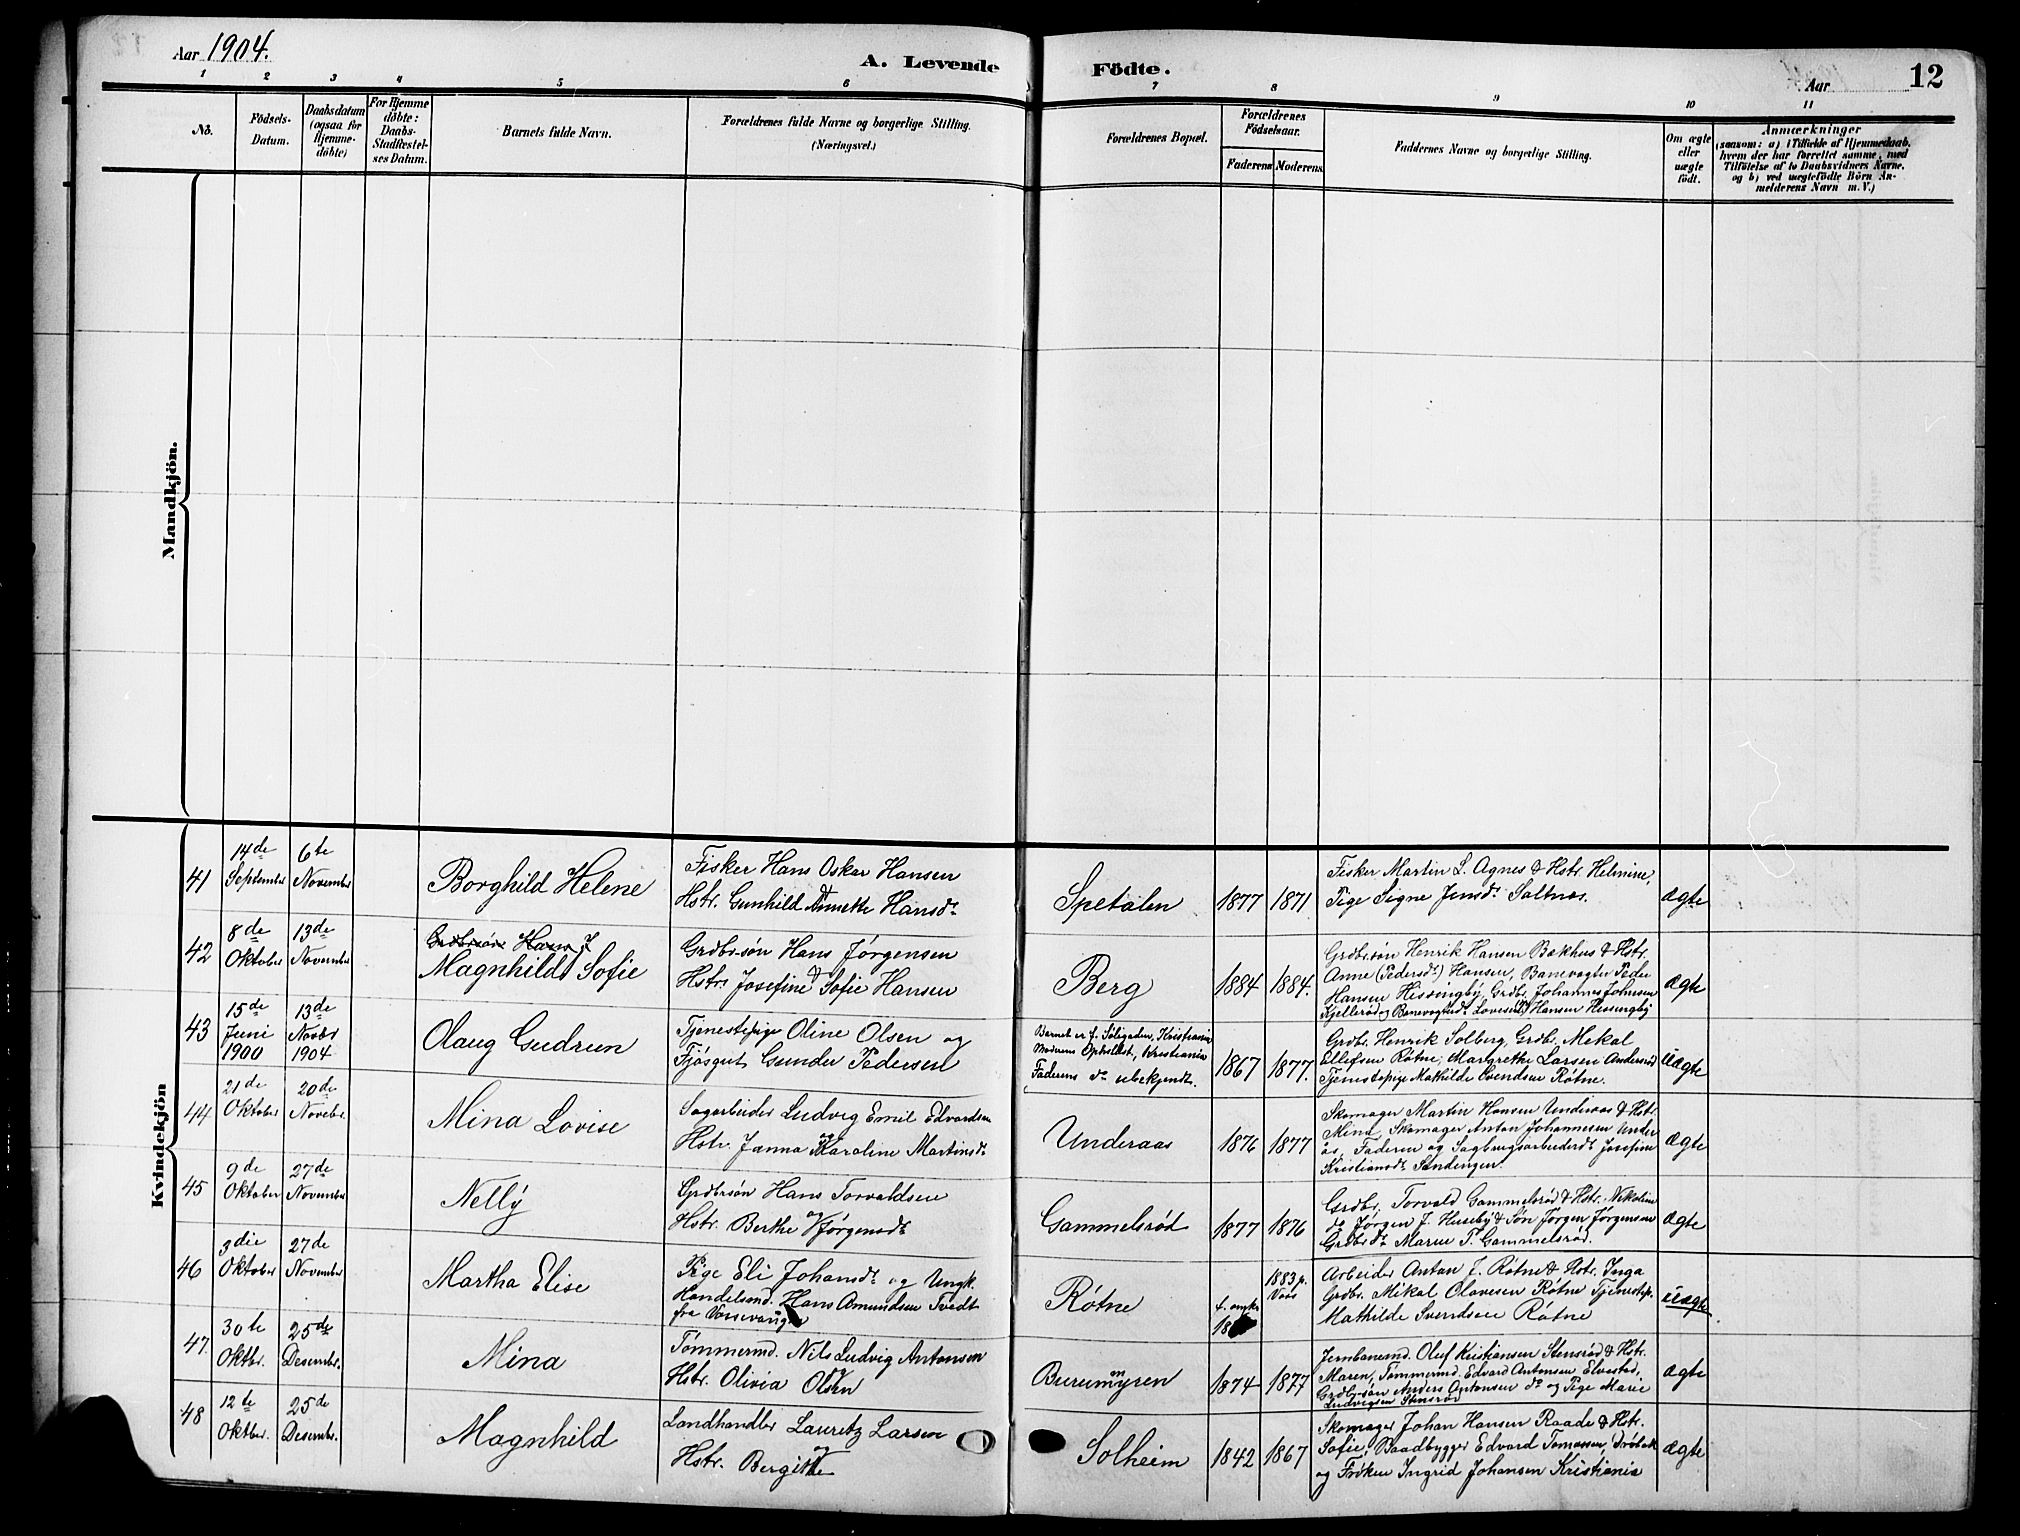 Aar 1904.
A. Levende Födte.
Aar
12
1 2 3 4 5 6 7 8 9 10 11
No.
Födsels-
Datum.
Daabsdatum
(ogsaa for
Hjemme-
döbte)
For Hjemme
döbte:
Daabs-
Stadfæstel-
ses Datum.
Barnets fulde Navn.
Forældrenes fulde Navne og borgerlige Stilling.
(Næringsvei.)
Forældrenes Bopæl.
Forældrenes
Födselsaar.
Faderens Moderens
Faddernes Navne og borgerlige Stilling.
Om ægte
eller
uægte
födt.
Anmærkninger
(saasom: a) i Tilfælde af Hjemmedaab,
hvem der har forrettet samme, med
Tilföielse af to Daabsvidners Navne.
og b) ved uægtefödte Börn An-
melderens Navn m. V.)
Mandkjön.
Kvindekjön
41
14de
September
6te
November
Borghild Helene
Fisker Hans Oskar Hansen
Hstr. Gunhild Annette Hansdr
Spetalen
1877 1871
Fisker Martin L. Agnes & Hstr. Helmine,
Pige Signe Jensdr Saltnæs.
ægte
42
8de
Oktober
13de
November
Grdbrsøn Hans J
Magnhild Sofie
Grdbrsøn Hans Jørgensen
& Hstr. Josefine Sofie Hansen
Berg
1884 1884.
Grdbrsøn Henrik Hansen Bækhus & Hstr.
Anne (Pedersdr) Hansen, Banevogter Peder
Hansen Hissingby, Grdbr. Johannes Johnsen
Kjellerød og Banevogterdr Lovise Hansen Hissingby
ægte
43
15de
Juni
1900
13de
Novbr
1904
Olaug Gudrun
Tjenestepige Oline Olsen og
Fjøsgut Gunder Pedersen
Barnet er f. Kristiania
Moderens Opholdst. Kristiania
Faderens do ubekjendt.
1867 1877.
Grdbr. Henrik Solberg, Grdbr. Mekal
Ellefsen Røtne, Margrethe Larsen Andersrød
Tjenestepige Mathilde Svendsen Røtne.
uægte
44
21de
Oktober
20de
Novebr.
Mina Lovise
Sagarbeider Ludvig Emil Edvardsen
og Hstr. Janna Karoline Martinsdr
Underaas
1876 1877
Skomager Martin Hansen Underaas & Hstr.
Mina, Skomager Anton Johannesen Under
ås, Faderen og Sagbrugsarbeiderdr Josefine
Kristiansdr Sandengen.
ægte
45
9de
Oktober
27de
November
Nelly
Grdbrsøn Hans Torvaldsen
og Hstr. Berthe Jørgensdr
Gammelsrød
1877 1876
Grdbr. Torvald Gammelsrød & Hstr. Nikoline
do Jørgen J. Huseby & Søn Jørgen Jørgensen
Grdbrdr Maren T. Gammelsrød.
ægte
46
3die
Oktober
27de
November
Martha Elise
Pige Eli Johansdr og Ungk.
Handelsmd. Hans Amundsen Tvedt
fra Vossevangen
Røtne
1883 p.
Voss
Arbeider Anton J. Røtne & Hstr. Inga
Grdbr. Mikal Olavesen Røtne Tjenestep.
Mathilde Svendsen Røtne
uægte
47.
30te
Oktbr.
25de
Desembr.
Mina
Tømmermd. Nils Ludvig Antonsen
Hstr. Olivia Olsen
Burumyren
1874 1877
Jernbanemd. Oluf Kristiansen Stensrød & Hstr.
Maren, Tømmermd. Edvard Antonsen Elvestad,
Grdbrsøn Anders Antonsen do og Pige Marie
Ludvigsen Stensrød
ægte
48
12te
Oktbr.
25de
Desembr.
Magnhild
Landhandler Lauretz Larsen
og Hstr. Bergitte
Solheim
1842 1867
Skomager Johan Hansen Raade & Hstr.
Sofie, Baadbygger Edvard Tomassen, Drøbak
og Frøken Ingrid Johansen Kristiania
ægte